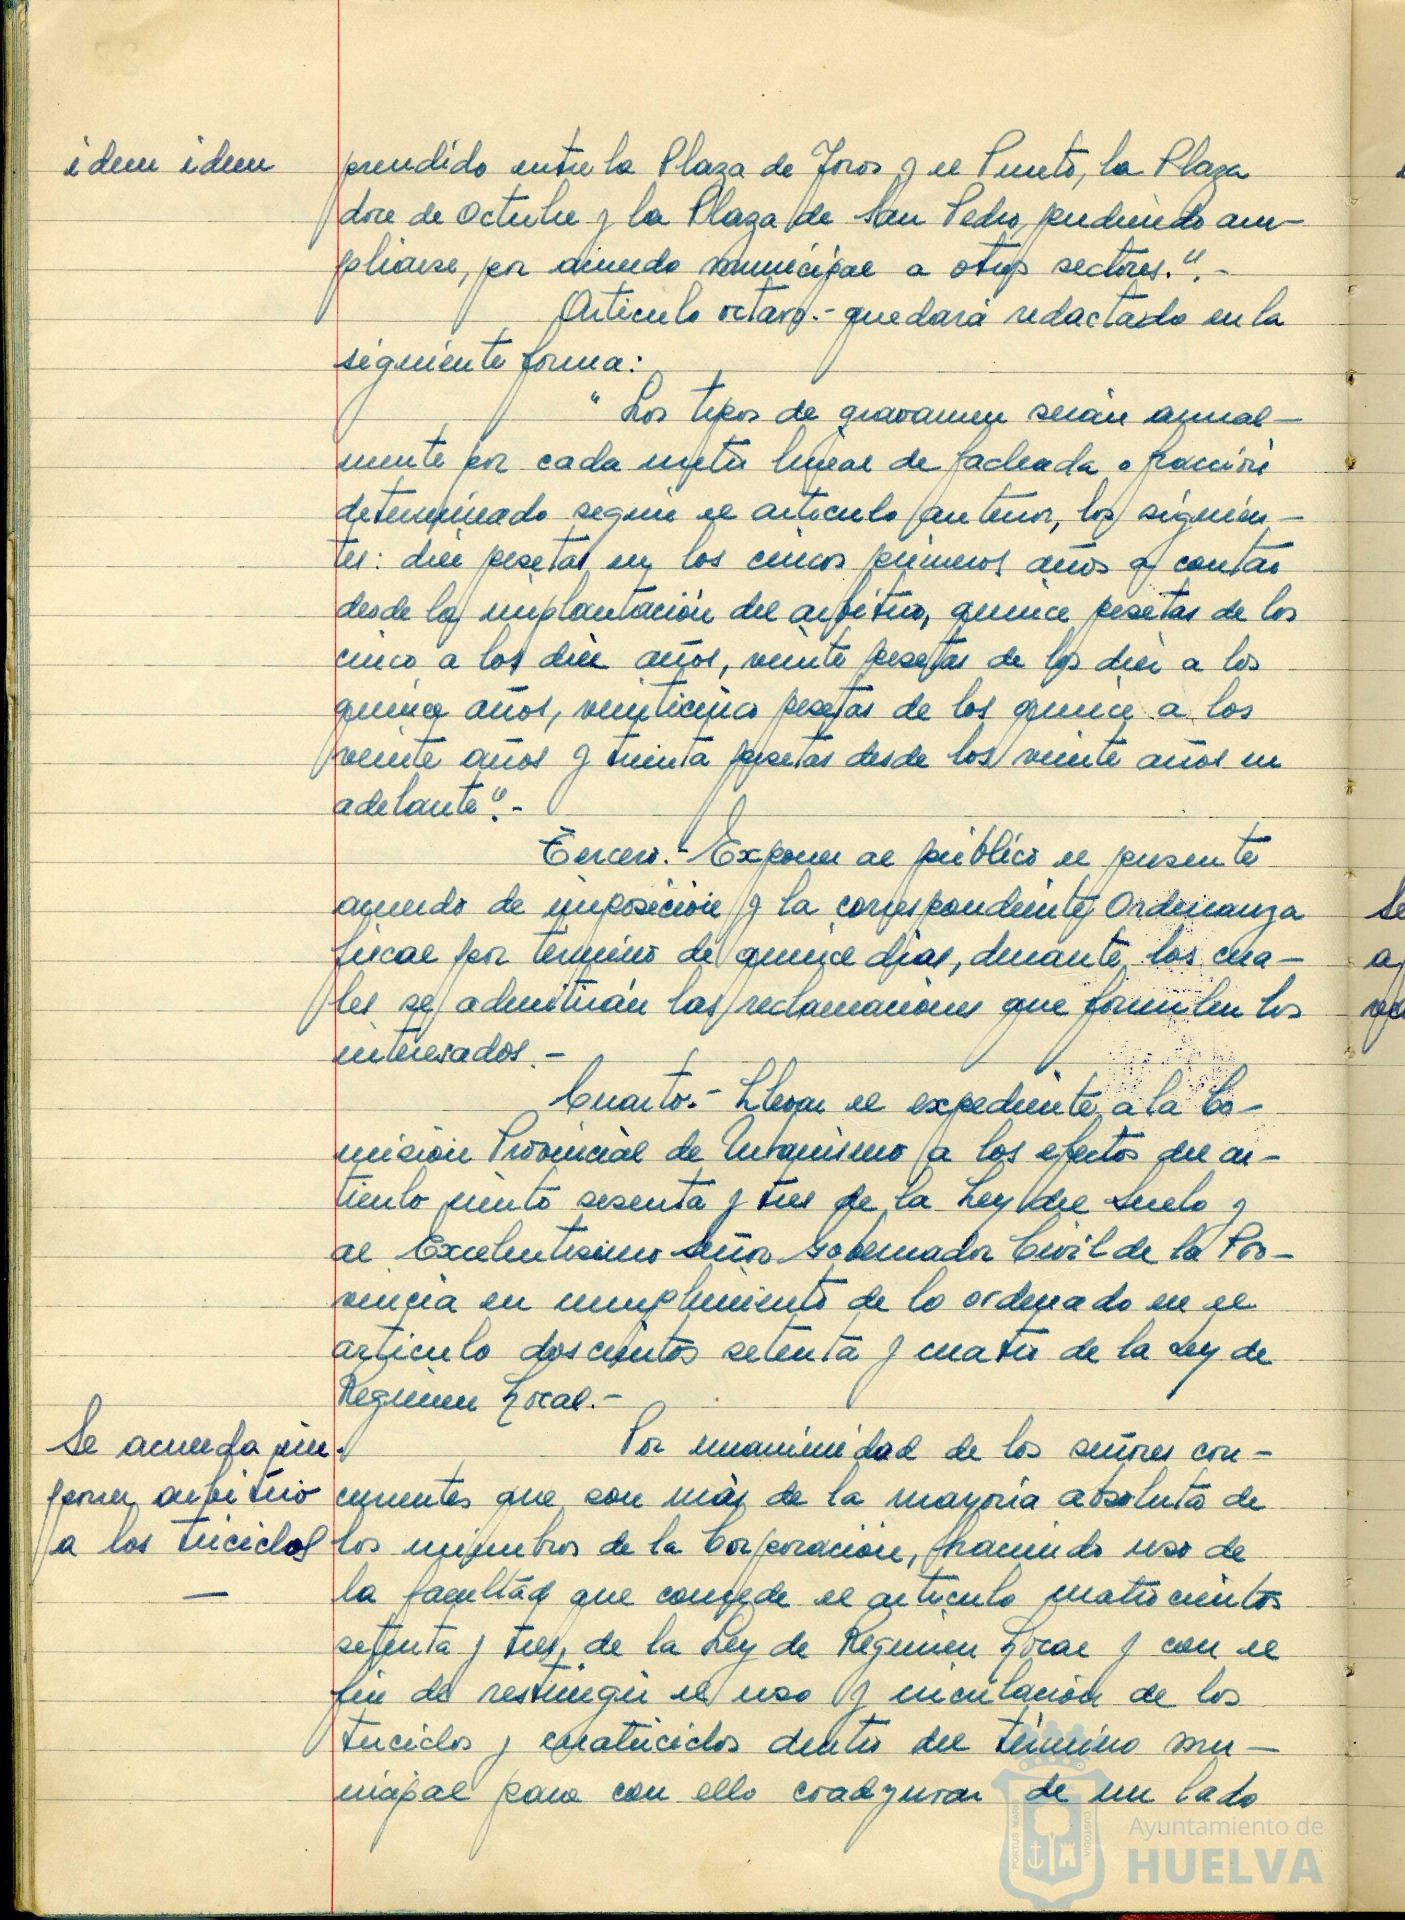 idem idem
prendido entre la Plaza de Toros y el Punto, la Plaza
doce de Octubre y la Plaza de San Pedro, pudiendo am-
pliarse, por acuerdo municipal a otros sectores.".-
Articulo octavo.- quedará redactado en la
siguiente forma:
" Los tipos de gravamen serán anual-
mente por cada metro lineal de fachada o fracción
determinado según el articulo anterior, los siguien-
tes: diez pesetas en los cincos primeros años a contar
desde la implantación del arbitrio, quince pesetas de los
cinco a los diez años, veinte pesetas de los diez a los
quince años, veinticinco pesetas de los quince a los
veinte años y treinta pesetas desde los veinte años en
adelante".-
Tercero.- Exponer al público el presente
acuerdo de imposición y la correspondiente Ordenanza
fiscal por término de quince dias, durante los cua-
les se admitirán las reclamaciones que formulen los
interesados.-
Cuarto.- Llevar el expediente a la Co-
misión Provincial de Urbanismo a los efectos del ar-
ticulo ciento sesenta y tres de la Ley del Suelo y
al Excelentisimo Señor Gobernador Civil de la Pro-
vincia en cumplimiento de lo ordenado en el
articulo doscientos setenta y cuatro de la Ley de
Regimen Local.-
Se acuerda im-
poner arbitrio
a los triciclos
Por unanimidad de los señores con-
currentes que son más de la mayoria absoluta de
los miembros de la Corporación, haciendo uso de
la facultad que concede el articulo cuatrocientos
setenta y tres, de la Ley de Regimen Local y con el
fin de restringir el uso y circulación de los
triciclos y cuatriciclos dentro del término mu-
nicipal para con ello coadyuvar de un lado
Ayuntamiento de
HUELVA